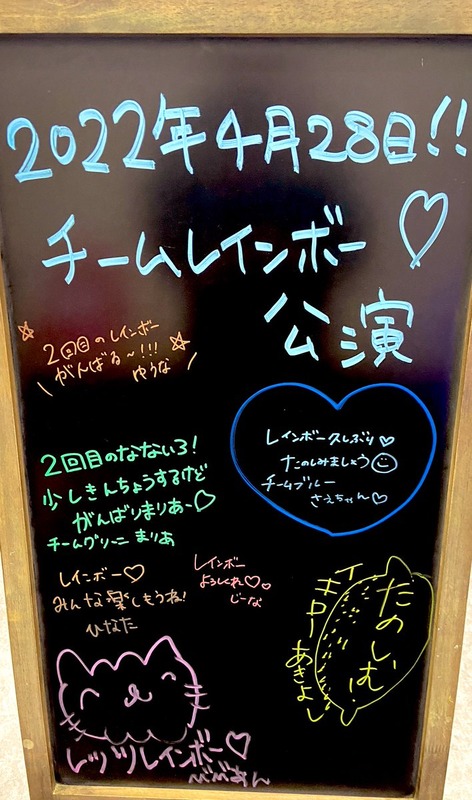 2022年4月28日!!
チームレインボー♡
公演
2回目のレインボー
がんばる〜!!!
ゆうな
レインボー久しぶり♡
たのしみましょう☺
チームブルー
さえちゃん♡
2回目のなないろ!
少しきんちょうするけど
がんばりまりあ〜♡
チームグリーン まりあ
レインボー♡
みんな楽しもうね!
ひなた
レインボー
よろしくね♡♡
じーな
たのしむ!
イエローあきよし
レッツレインボー♡
べべあん